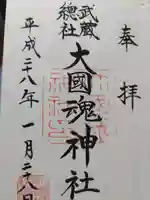 奉拝
武蔵
總社
大國魂神社
平成二八年一月二八日